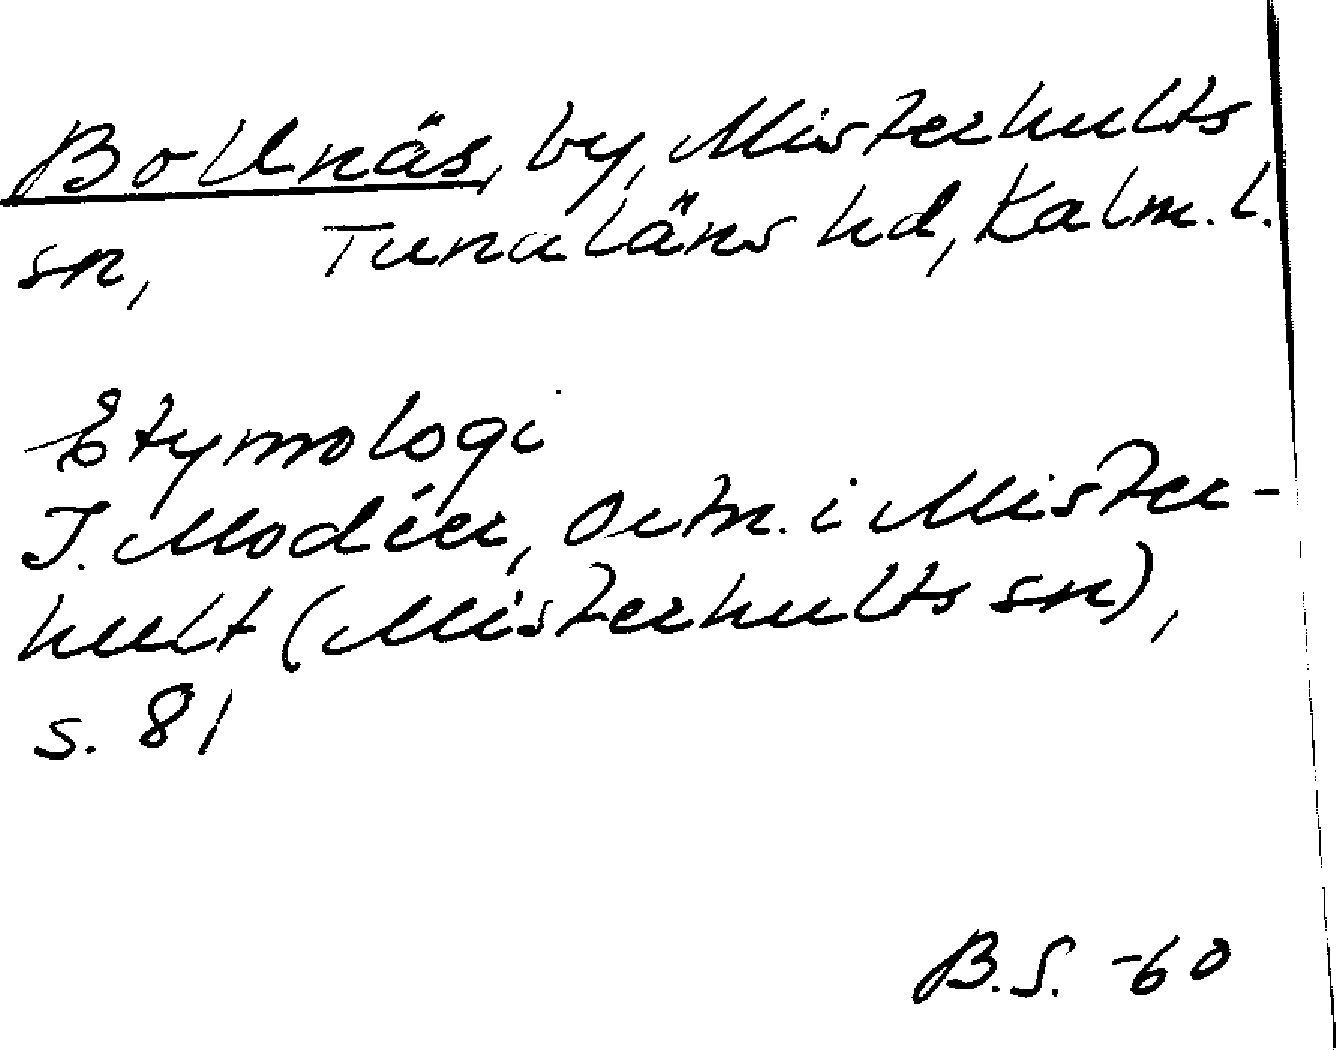 Bollnäs, by, Misterhults
sn, Tunaläns hd, Kalm. l.
Etymologi
I. Modéer, Ortn. i Mister-
hult (Misterhults sn),
s. 81
B.S. -60